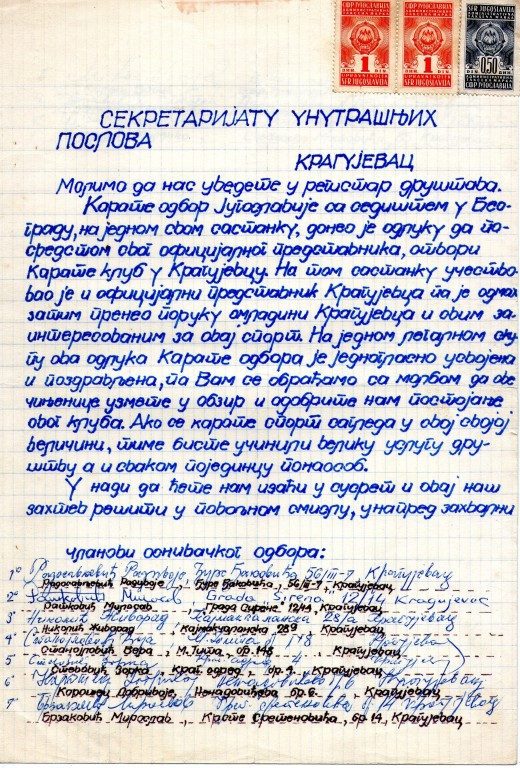 СФР ЈУГОСЛАВИЈА СФР ЈУГОСЛАВИЈА SFR JUGOSLAVIJA
1 1 0,50
ДИН. DIN. ДИН. DIN.
SFR JUGOSLAVIJA SFR JUGOSLAVIJA СФР ЈУГОСЛАВИЈА
СЕКРЕТАРИЈАТУ УНУТРАШЊИХ
ПОСЛОВА
КРАГУЈЕВАЦ
Молимо да нас уведете у регистар друштава.
Карате одбор Југославије са седиштем у Бео-
граду, на једном свом састанку, донео је одлуку да по-
средством свог официјалног представника, отвори
Карате клуб у Крагујевцу. На том састанку учество-
вао је и официјални представник Крагујевца па је одмах
затим пренео поруку омладини Крагујевца и овим за-
интересованим за овај спорт. На једном легалном ску-
пу ова одлука Карате одбора је једногласно усвојена
и поздрављена, па Вам се обраћамо са молбом да ове
чињенице узмете у обзир и одобрите нам постојање
овог клуба. Ако се карате спорт сагледа у овој својој
величини, тиме бисте учинили велику услугу дру-
штву а и сваком појединцу понаособ.
У нади да ћете нам изаћи у сусрет и овај наш
захтев решити у повољном смислу, унапред захвални
чланови оснивачког одбора:
1° Ђуре Ђаковића 56/III-7 Крагујевац
Радивоје, Ђуре Ђаковића, 56/III-7, Крагујевац
2° Рашковић Милисав Grada Sirena, 12/41 Kragujevac
Рашковић Милисав, Града Сиране, 12/41, Крагујевац
3° Николић Живорад Кајмакчаланска 28/а Крагујевац
Николић Живорад, Кајмакчаланска 28а, Крагујевац
4° 148
Станојловић Вера, М. Тита, бр. 148, Крагујевац
5
Зорка, Краг. одред, бр. 4, Крагујевац
6°
Добривоје, Ненадовићева бр. 6. Крагујевац
7° 14
Брзаковић Мирослав, Крсте Сретеновића, бр 14, Крагујевац